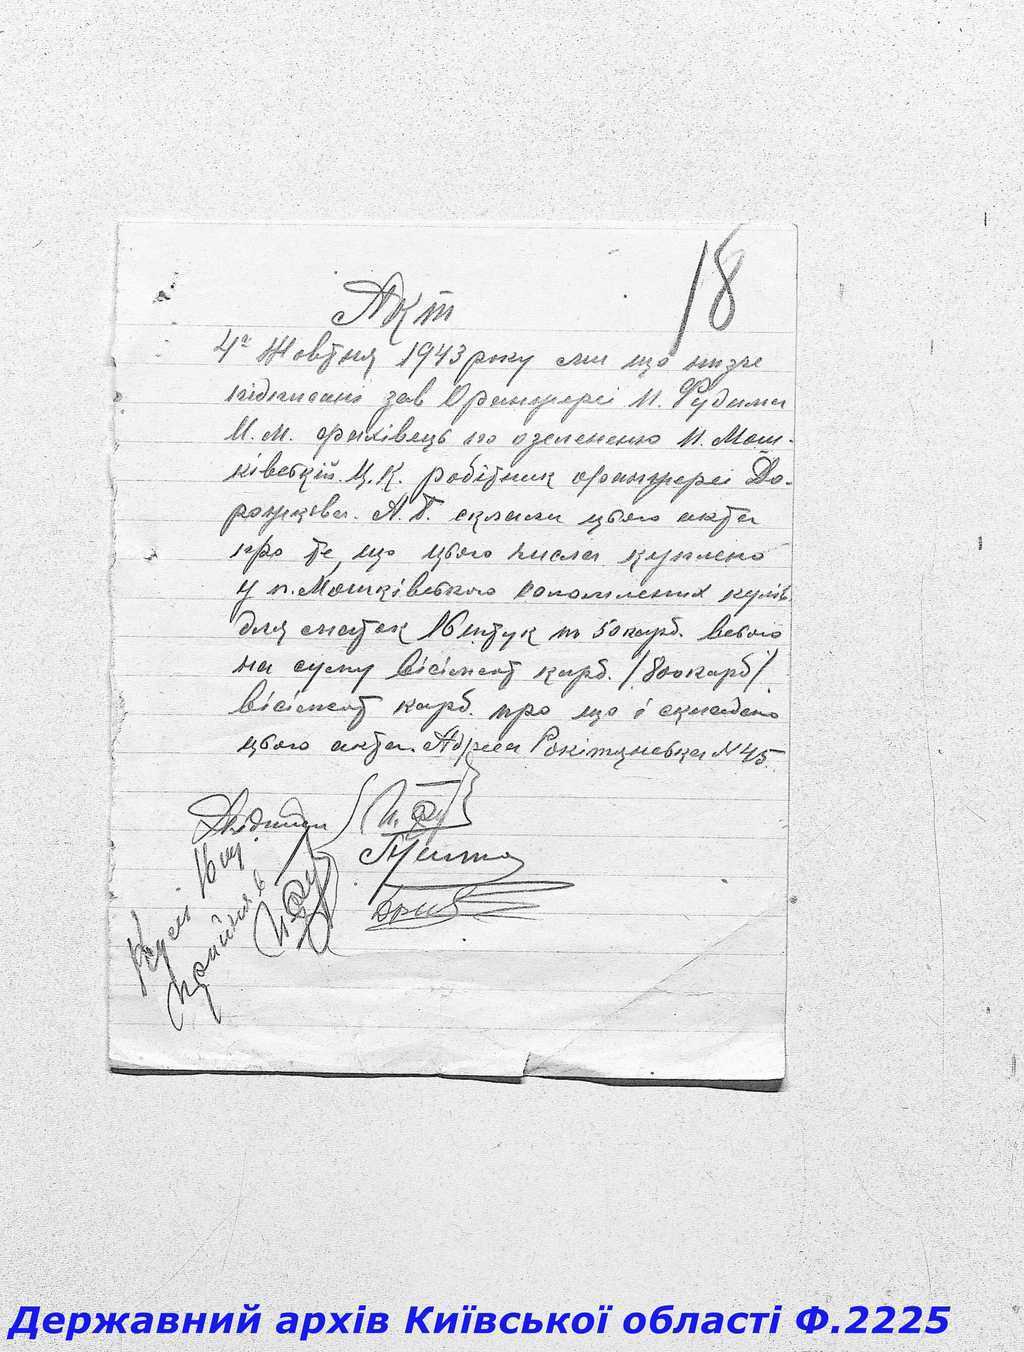 18
Акт
4го Жовтня 1943 року ми що низче
підписані зав Оранжереі П. Рудима
М. М. фахівець по озелененю П. Мош-
ківський. Ц. К. робітник оранжереі До-
рожкова. А. П. склали цього акта
про те, що цього числа куплено
у п. Мошківського соломлених кулів
для маток 16 штук по 50 карб. всього
на суму вісімсот карб. /800 карб/
вісімсот карб. про що і складено
цього акта. Адреса Рокітянська № 45.
Кулі 16 шт.
прийняв
Державний архів Київської області Ф.2225